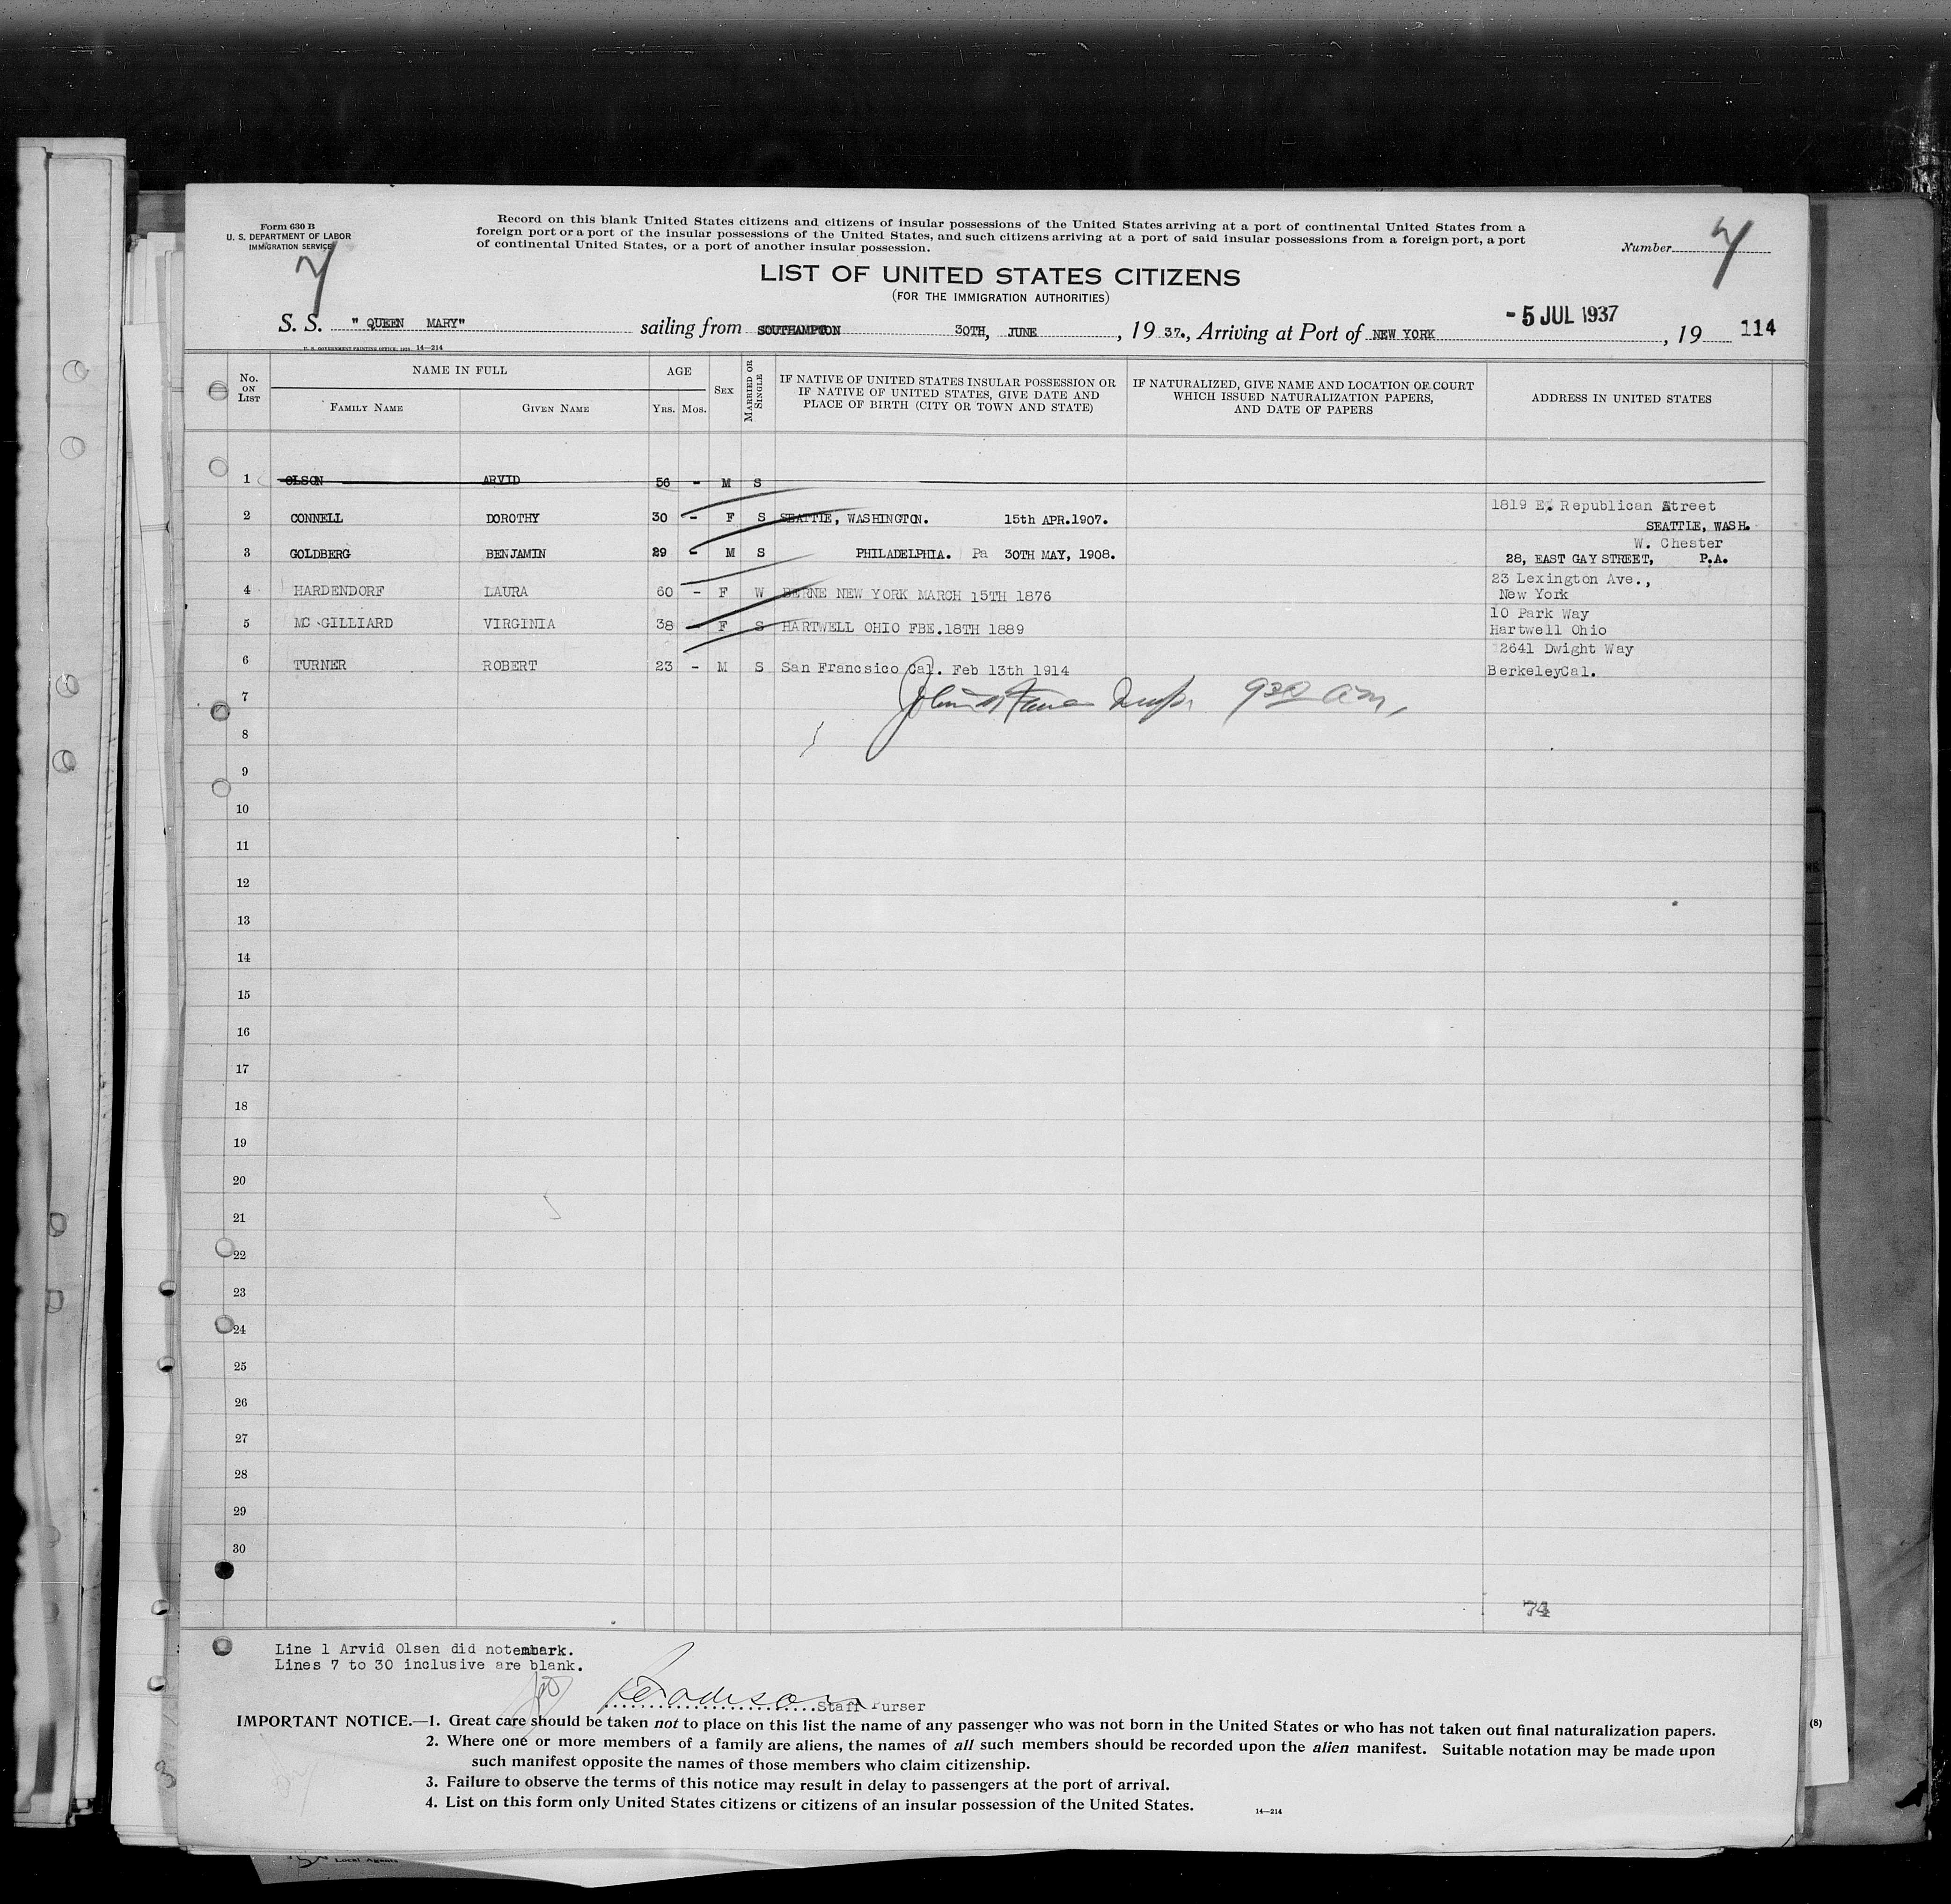 Form 630 B
U. S. DEPARTMENT OF LABOR
IMMIGRATION SERVICE
Record on this blank United States citizens and citizens of insular possessions of the United States arriving at a port of continental United States from a
foreign port or a port of the insular possessions of the United States, and such citizens arriving at a port of said insular possessions from a foreign port, a port
of continental United States, or a port of another insular possession.
Number
LIST OF UNITED STATES CITIZENS
(FOR THE IMMIGRATION AUTHORITIES)
S. S. "QUEEN MARY" sailing from SOUTHAMPTON 30TH, JUNE, 19 37., Arriving at Port of NEW YORK -5 JUL 1937, 19 114
U. S. GOVERNMENT PRINTING OFFICE: 14—214
No. ON LIST NAME IN FULL AGE SEX MARRIED OR SINGLE IF NATIVE OF UNITED STATES INSULAR POSSESSION OR IF NATIVE OF UNITED STATES, GIVE DATE AND PLACE OF BIRTH (CITY OR TOWN AND STATE) IF NATURALIZED, GIVE NAME AND LOCATION OF COURT WHICH ISSUED NATURALIZATION PAPERS, AND DATE OF PAPERS ADDRESS IN UNITED STATES
FAMILY NAME GIVEN NAME YRS. MOS.
1 OLSON ARVID 56 - M S
2 CONNELL DOROTHY 30 - F S SEATTLE, WASHINGTON. 15th APR.1907. 1819 E. Republican Street
SEATTLE, WASH.
3 GOLDBERG BENJAMIN 29 - M S PHILADELPHIA. Pa 30TH MAY, 1908. W. Chester
28, EAST GAY STREET, P.A.
4 HARDENDORF LAURA 60 - F W BERNE NEW YORK MARCH 15TH 1876 23 Lexington Ave.,
New York
5 MC GILLIARD VIRGINIA 38 - F S HARTWELL OHIO FBE.18TH 1889 10 Park Way
Hartwell Ohio
6 TURNER ROBERT 23 - M S San Francsico Cal. Feb 13th 1914 2641 Dwight Way
BerkeleyCal.
7
930 am,
8
9
10
11
12
13
14
15
16
17
18
19
20
21
22
23
24
25
26
27
28
29
30
74
Line 1 Arvid Olsen did notembark.
Lines 7 to 30 inclusive are blank.
Staff Purser
IMPORTANT NOTICE.—1. Great care should be taken not to place on this list the name of any passenger who was not born in the United States or who has not taken out final naturalization papers.
2. Where one or more members of a family are aliens, the names of all such members should be recorded upon the alien manifest. Suitable notation may be made upon
such manifest opposite the names of those members who claim citizenship.
3. Failure to observe the terms of this notice may result in delay to passengers at the port of arrival.
4. List on this form only United States citizens or citizens of an insular possession of the United States.
14—214
(8)
Local Agents